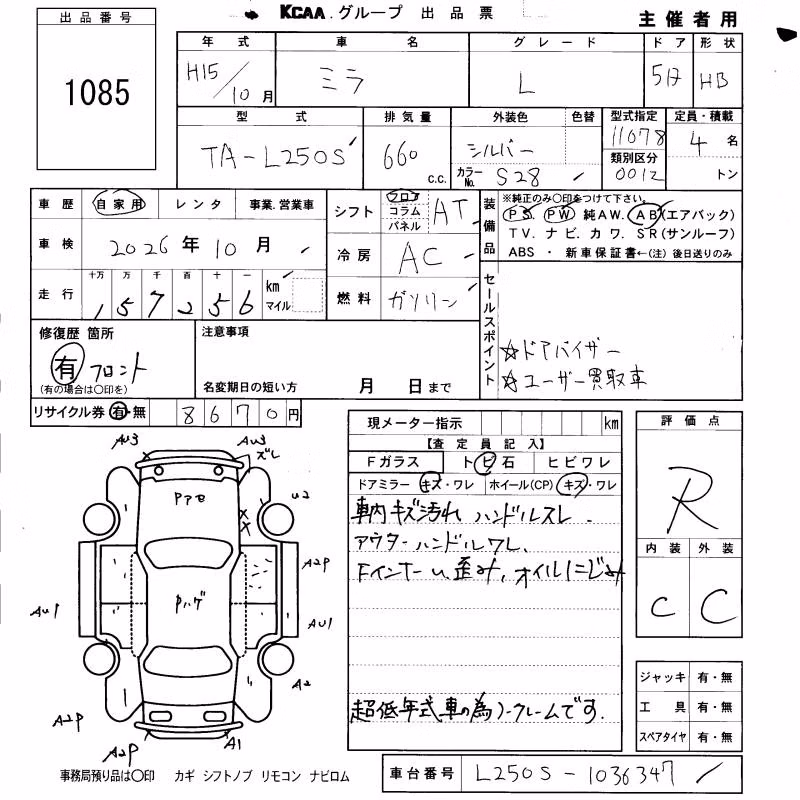 KCAA.グループ 出品票
主催者用
出品番号
1085
年式 車名 グレード ドア 形状
H15/10月 ミラ L 5D HB
型式 排気量 外装色 色替 型式指定 定員・積載
TA-L250S 660 c.c. シルバー 11078 4名
カラーNo. S28 類別区分 0012 トン
車歴 自家用 レンタ 事業.営業車
シフト フロア コラム パネル AT
装備品 ※純正のみ〇印をつけて下さい。
PS. PW 純AW. AB(エアバック)
TV. ナビ. カワ. SR(サンルーフ)
ABS ・ 新車保証書←(注) 後日送りのみ
車検 2026年10月
冷房 AC
走行 十万 万 千 百 十 一
157256 km マイル
燃料 ガソリン
セールスポイント
☆ドアバイザー
☆ユーザー買取車
修復歴 箇所
有 フロント
(有の場合は〇印を)
注意事項
名変期日の短い方 月 日まで
リサイクル券 有 無 8670円
現メーター指示 km
【査定員記入】
Fガラス トビ石 ヒビワレ
ドアミラー キズ・ワレ ホイール(CP) キズ・ワレ
車内キズ汚れ ハンドルスレ.
アウターハンドルワレ.
Fインナーu.歪み,オイルにじみ
超低年式車の為ノークレームです.
評価点
R
内装 外装
C C
ジャッキ 有・無
工具 有・無
スペアタイヤ 有・無
AU3 AU3
ズレ
U2
A2P
AU1
AU1
A2
A2P
A2P
A1
Pハゲ
事務局預り品は〇印 カギ シフトノブ リモコン ナビロム
車台番号 L250S-1036347